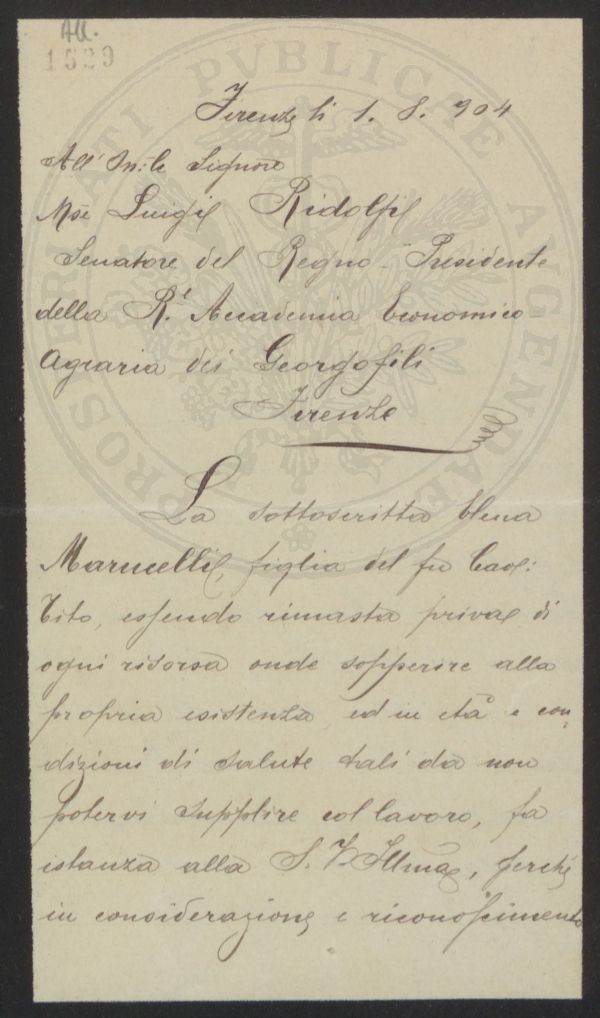 All.
1529
PROSPERITATI PVBLICAE AVGENDAE
Firenze li 1. 8. 904
All' Ill. Signore
Mse Luigi Ridolfi
Senatore del Regno - Presidente
della R.e Accademia Economico-
Agraria dei Georgofili
Firenze
La sottoscritta Elena
Marucelli, figlia del fu Cav:
Tito, essendo rimasta priva di
ogni risorsa onde sopperire alla
propria esistenza, ed in età e con=
dizioni di salute tali da non
potervi supplire col lavoro, fa
istanza alla S. V. Illma, perchè
in considerazione e riconoscimento